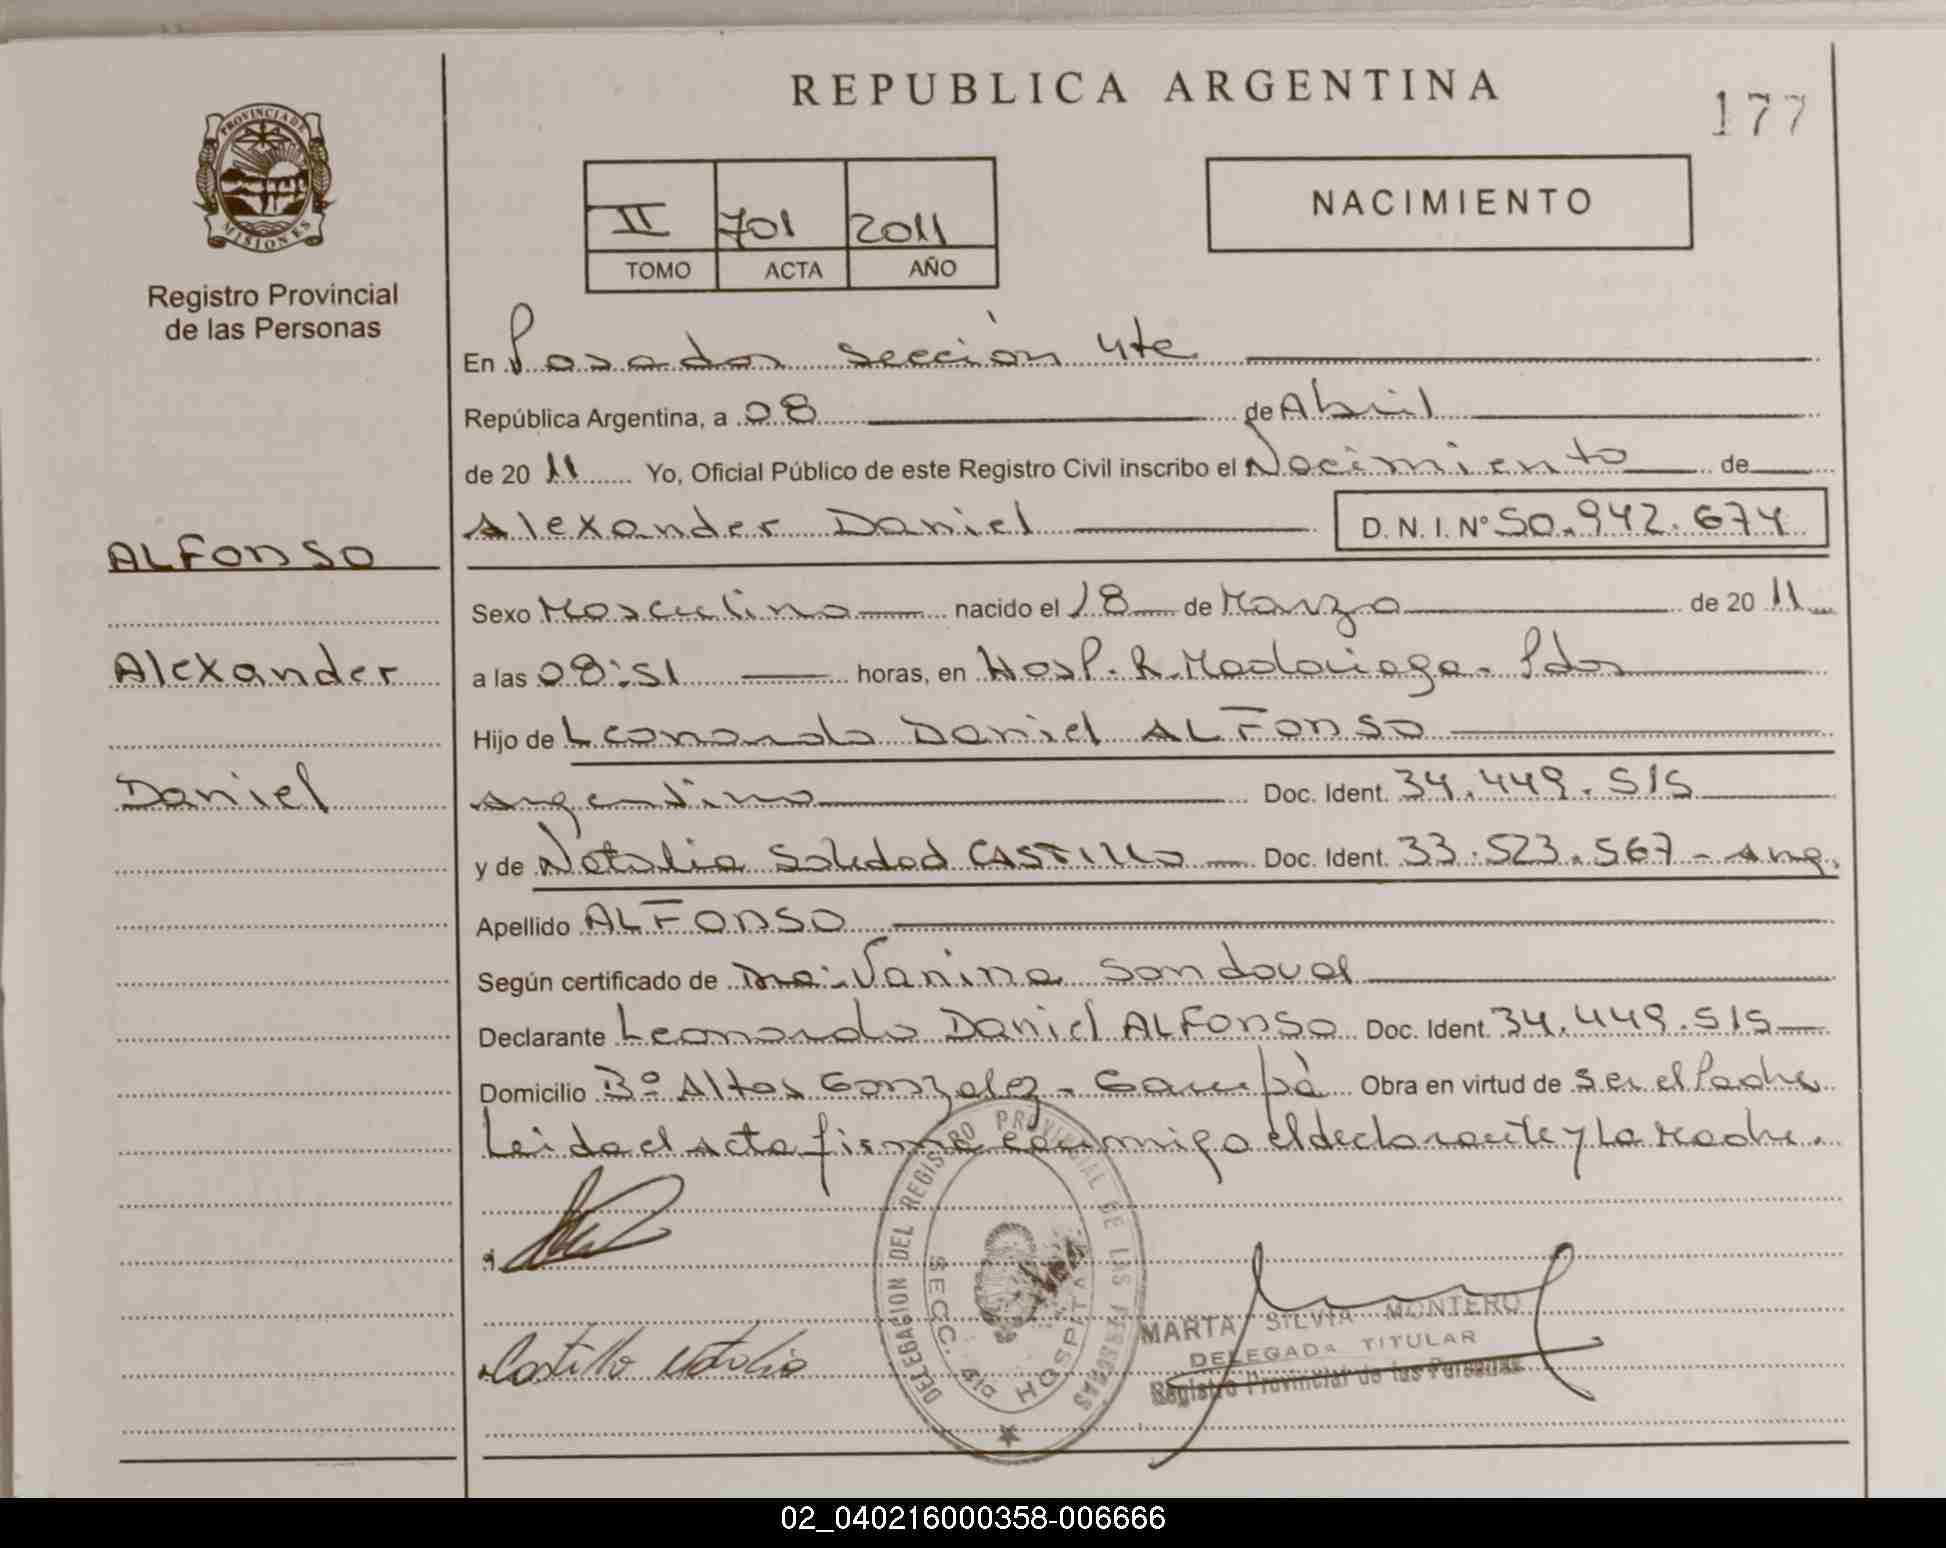 REPUBLICA ARGENTINA
177
PROVINCIA DE
MISIONES
Registro Provincial
de las Personas
II 701 2011
TOMO ACTA AÑO
NACIMIENTO
En Posadas sección 4ta
República Argentina, a 08 de Abril
de 20 11 Yo, Oficial Público de este Registro Civil inscribo el Nacimiento de
Alexander Daniel D. N. I. Nº 50.942.674
ALFONSO
Alexander
Daniel
Sexo Masculino nacido el 18 de Marzo de 20 11
a las 08:51 horas, en Hosp. R. Madariaga - Pdas
Hijo de Leonardo Daniel ALFONSO
argentino Doc. Ident. 34.449.515
y de Natalia Soledad CASTILLO Doc. Ident. 33.523.567 - Arg.
Apellido ALFONSO
Según certificado de Dra. Vanina Sandoval
Declarante Leonardo Daniel ALFONSO Doc. Ident. 34.449.515
Domicilio Bº Altos Gonzalez - Garupá Obra en virtud de ser el Padre
Leida el Acta firma conmigo el declarante y la Madre.
DELEGACION DEL REGISTRO PROVINCIAL DE LAS PERSONAS
SECC. 4ta HOSPITAL
Castillo Natalia
MARTA SILVIA MONTERO
DELEGADA TITULAR
Registro Provincial de las Personas
02_040216000358-006666